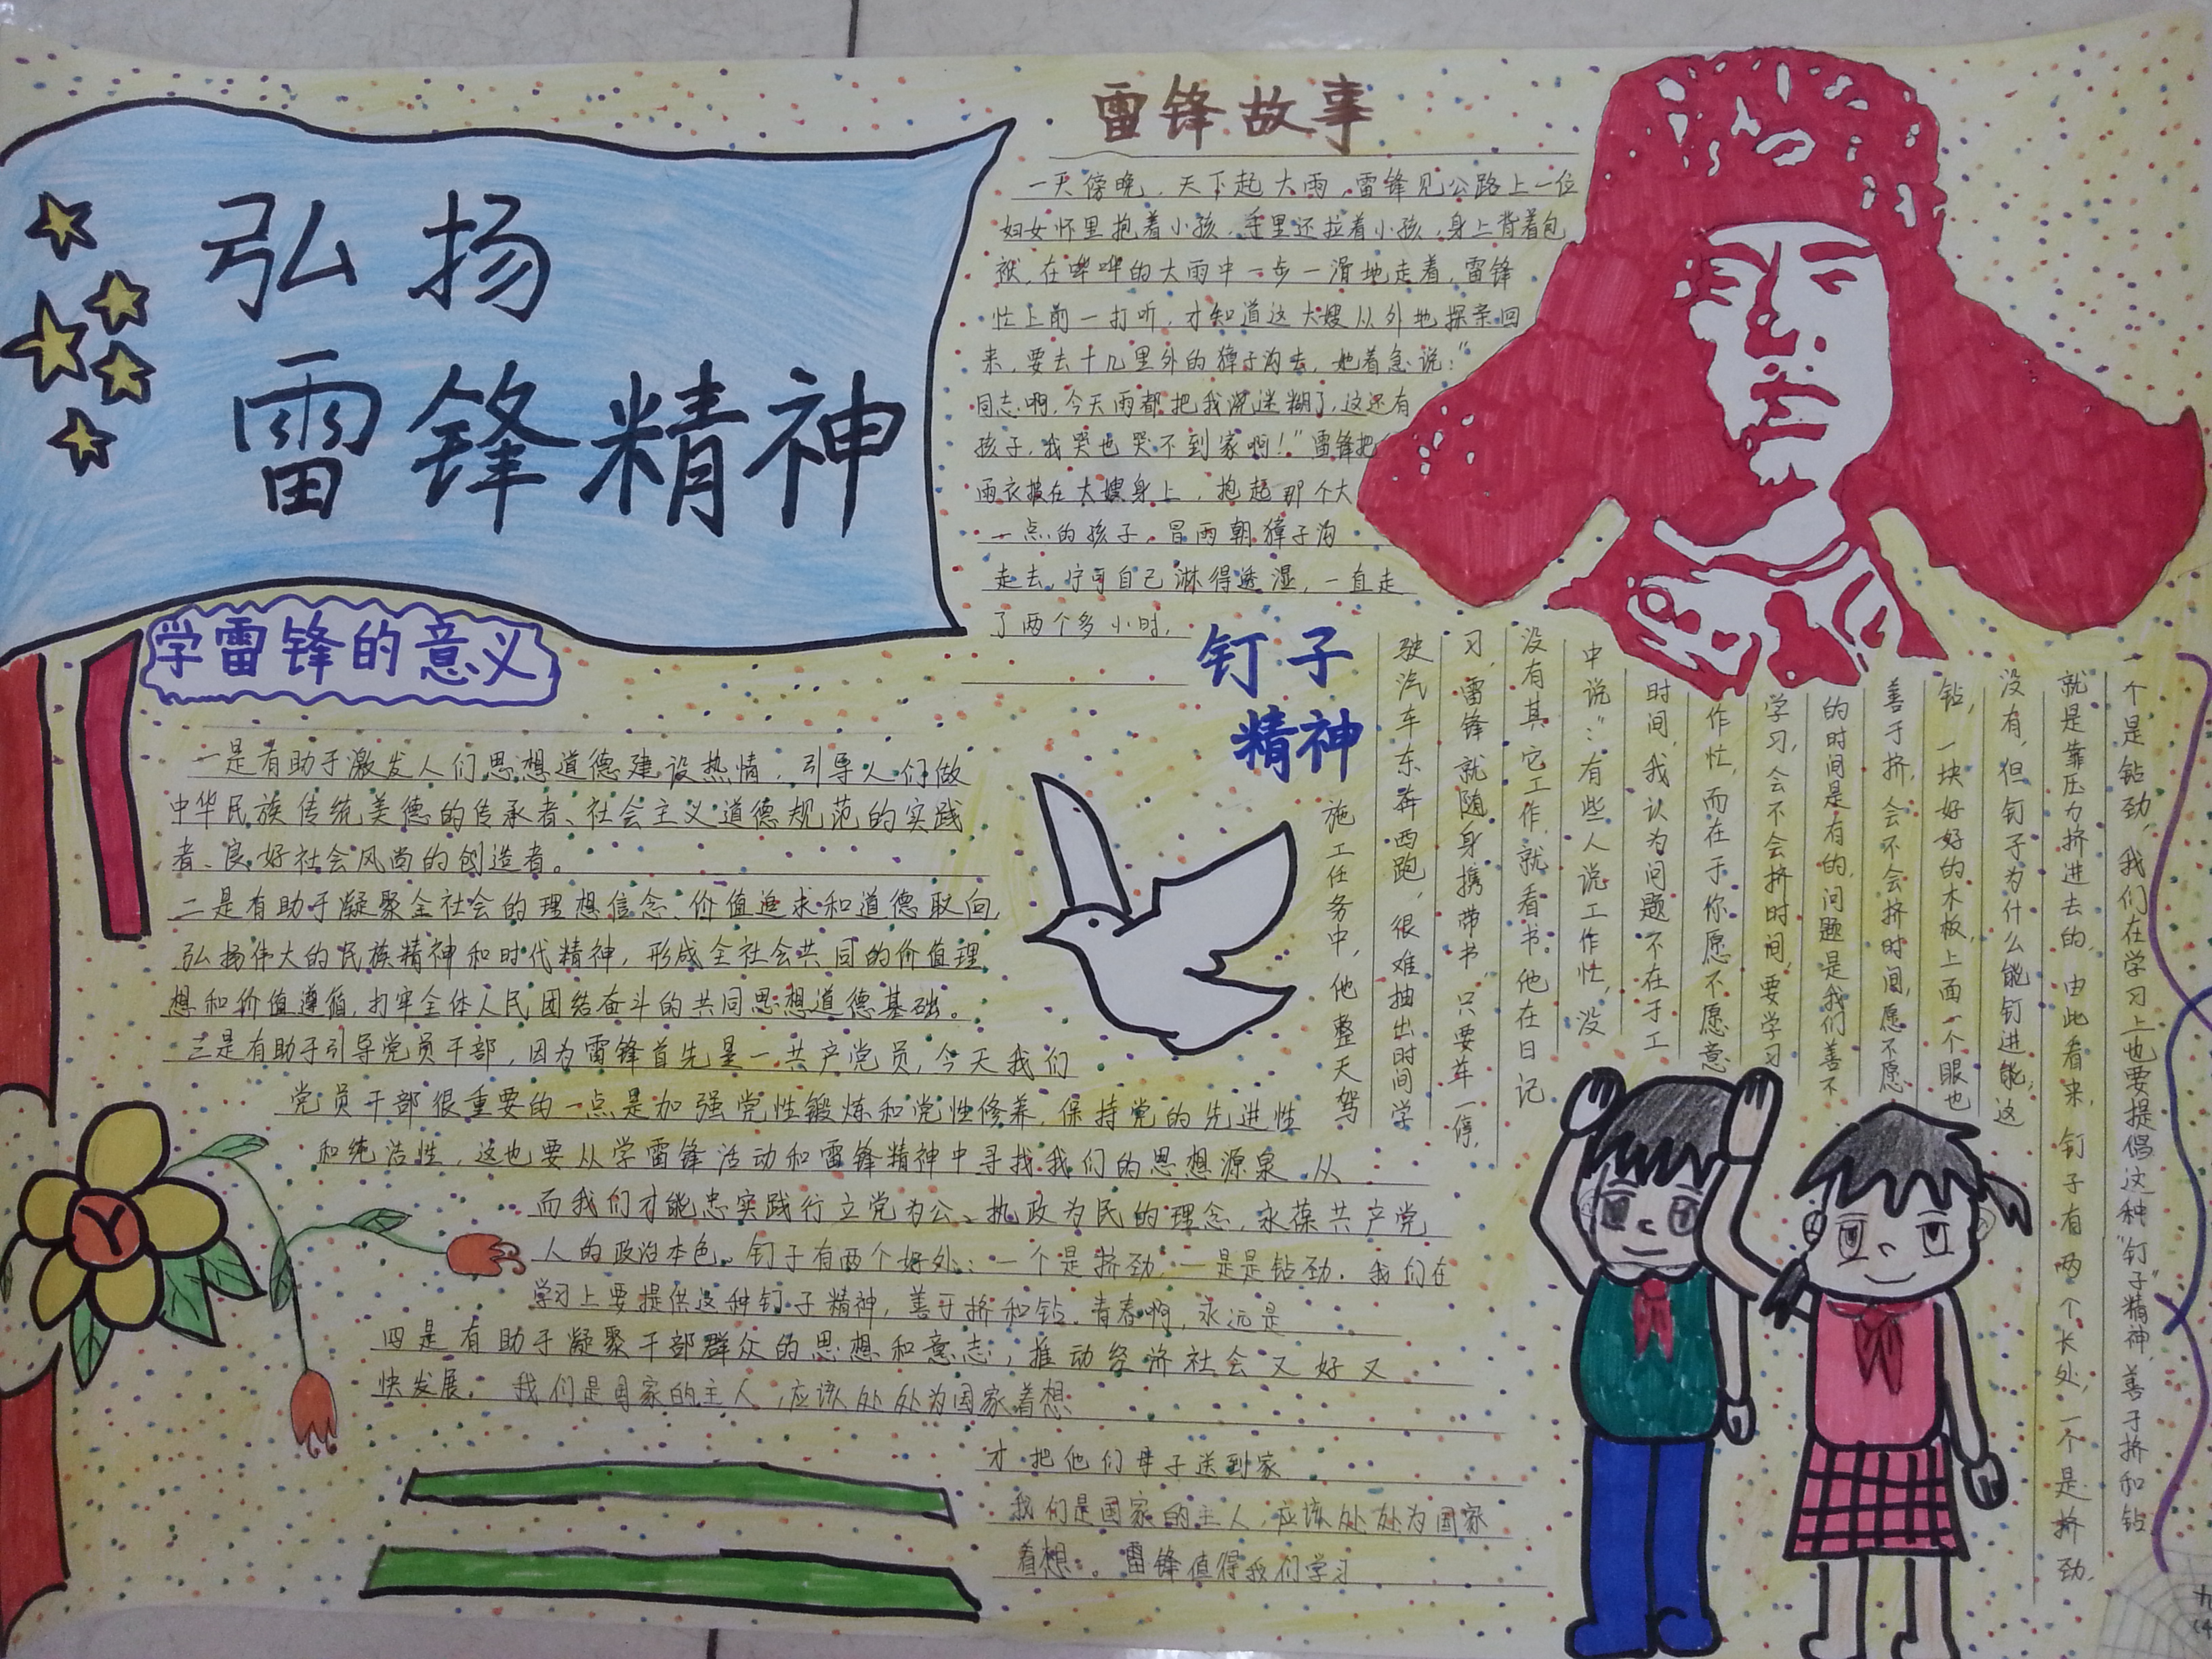 弘扬
雷锋精神
雷锋故事
一天傍晚，天下起大雨，雷锋见公路上一位
妇女怀里抱着小孩，手里还拉着小孩，身上背着包
袱，在哗哗的大雨中一步一滑地走着，雷锋
忙上前一打听，才知道这大嫂从外地探亲回
来，要去十几里外的獐子沟去，她着急说：“
同志啊，今天雨都把我浇迷糊了，这还有
孩子，我哭也哭不到家啊！”雷锋把
雨衣披在大嫂身上，抱起那个大
一点的孩子，冒雨朝獐子沟
走去，宁可自己淋得透湿，一直走
了两个多小时，
学雷锋的意义
一是有助于激发人们思想道德建设热情，引导人们做
中华民族传统美德的传承者、社会主义道德规范的实践
者、良好社会风尚的创造者。
二是有助于凝聚全社会的理想信念、价值追求和道德取向，
弘扬伟大的民族精神和时代精神，形成全社会共同的价值理
想和价值遵循，打牢全体人民团结奋斗的共同思想道德基础。
三是有助于引导党员干部，因为雷锋首先是一共产党员，今天我们
党员干部很重要的一点是加强党性锻炼和党性修养，保持党的先进性
和纯洁性，这也要从学雷锋活动和雷锋精神中寻找我们的思想源泉 从
而我们才能忠实践行立党为公、执政为民的理念，永葆共产党
人的政治本色。钉子有两个好处：一个是挤劲，一是是钻劲．我们在
学习上要提供这种钉子精神，善于挤和钻．青春啊，永远是
四是有助于凝聚干部群众的思想和意志，推动经济社会又好又
快发展． 我们是国家的主人，应该处处为国家着想
才把他们母子送到家
我们是国家的主人，应该处处为国家
着想．。雷锋值得我们学习
钉子
精神
施工任务中，他整天驾
驶汽车东奔西跑，很难抽出时间学
习，雷锋就随身携带书，只要车一停，
没有其它工作，就看书。他在日记
中说：“有些人说工作忙，没
时间，我认为问题不在于工
作忙，而在于你愿不愿意
学习，会不会挤时间，要学习
的时间是有的，问题是我们善不
善于挤，会不会挤时间，愿不愿
钻，一块好好的木板，上面一个眼也
没有，但钉子为什么能钉进能，这
就是靠压力挤进去的，由此看来，钉子有两个长处，一个是挤劲，
一个是钻劲，我们在学习上也要提倡这种“钉子”精神，善于挤和钻